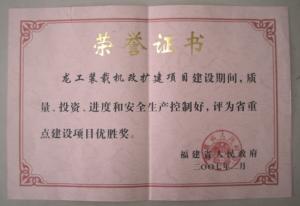 荣誉证书
龙工装载机改扩建项目建设期间,质
量、投资、进度和安全生产控制好,评为省重
点建设项目优胜奖。
福建省人民政府
二〇〇七年二月